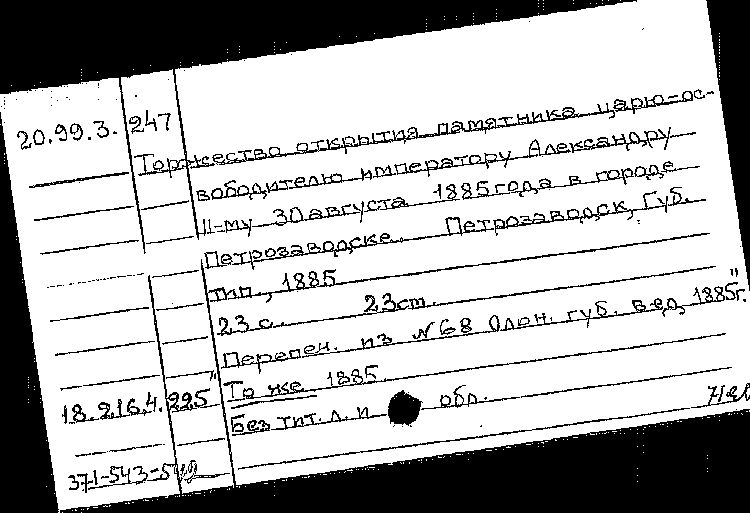 20.99.3. 247
Торжество открытия памятника царю-ос-
вободителю императору Александру
II-му 30 августа 1885 года в городе
Петрозаводске. Петрозаводск, Губ.
тип., 1885
23 с. 23 cm.
Перепеч. из №68 Олон. губ. вед, 1885 г."
18.216.4. 225 "То же 1885.
Без тит. л. и обл.
371-543-542